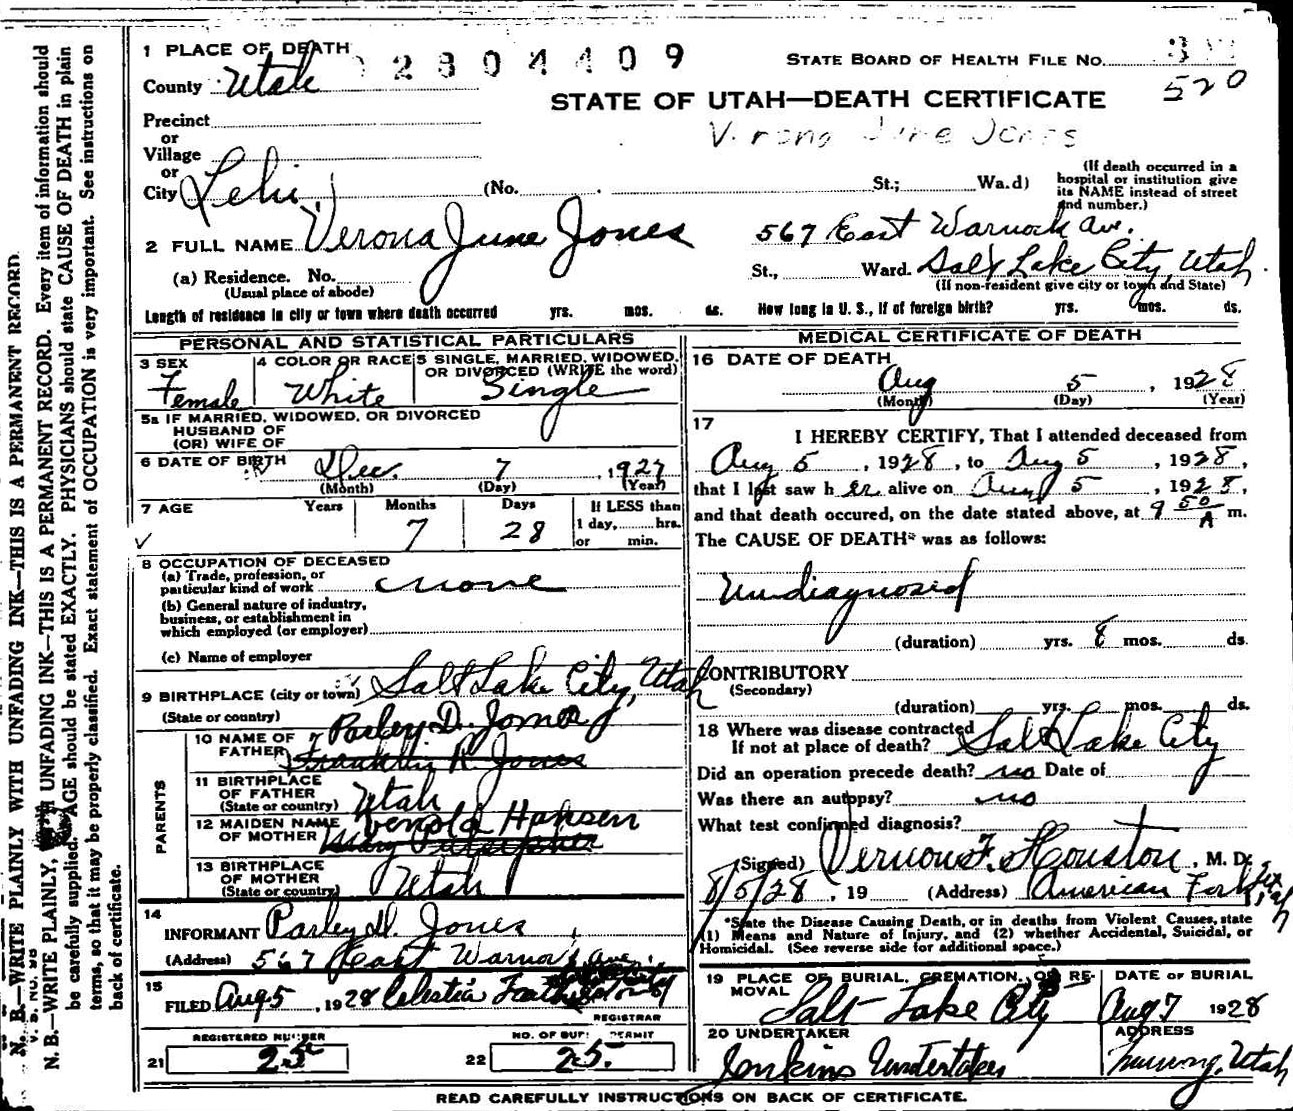 1 PLACE OF DEATH
2 8 0 4 4 0 9
STATE BOARD OF HEALTH FILE NO.
County Utah
520
STATE OF UTAH—DEATH CERTIFICATE
Precinct
June Jones
or
Village
or
City Lehi (No. St.; Wa.d)
(If death occurred in a
hospital or institution give
its NAME instead of street
and number.)
2 FULL NAME Verona June Jones
567 East Warnock Ave.
(a) Residence. No. St., Ward. Salt Lake City, Utah
(Usual place of abode) (If non-resident give city or town and State)
Length of residence in city or town where death occurred yrs. mos. ds. How long in U. S., if of foreign birth? yrs. mos. ds.
PERSONAL AND STATISTICAL PARTICULARS
3 SEX
Female
4 COLOR OR RACE
White
5 SINGLE, MARRIED, WIDOWED,
OR DIVORCED (WRITE the word)
Single
5a IF MARRIED, WIDOWED, OR DIVORCED
HUSBAND OF
(OR) WIFE OF
6 DATE OF BIRTH Dec. 7, 1927
(Month) (Day) (Year)
7 AGE Years Months Days If LESS than
7 28 1 day, hrs.
or min.
8 OCCUPATION OF DECEASED
(a) Trade, profession, or
particular kind of work none
(b) General nature of industry,
business, or establishment in
which employed (or employer)
(c) Name of employer
9 BIRTHPLACE (city or town) Salt Lake City, Utah
(State or country)
PARENTS
10 NAME OF Parley D. Jones
FATHER Franklin R Jones
11 BIRTHPLACE
OF FATHER Utah
(State or country)
12 MAIDEN NAME Hansen
OF MOTHER Mary
13 BIRTHPLACE
OF MOTHER Utah
(State or country)
14
INFORMANT Parley D. Jones
(Address) 567 East Warnock Ave.
15
FILED Aug 5, 1928 Celestia
REGISTRAR
REGISTERED NUMBER
21 25
NO. OF BURIAL PERMIT
22 25.
MEDICAL CERTIFICATE OF DEATH
16 DATE OF DEATH
Aug 5, 1928
(Month) (Day) (Year)
17
I HEREBY CERTIFY, That I attended deceased from
Aug 5, 1928, to Aug 5, 1928,
that I last saw her alive on Aug 5, 1928,
and that death occured, on the date stated above, at 9 50 A m.
The CAUSE OF DEATH* was as follows:
Undiagnosed
(duration) yrs. 8 mos. ds.
CONTRIBUTORY
(Secondary)
(duration) yrs. mos. ds.
18 Where was disease contracted
If not at place of death? Salt Lake City
Did an operation precede death? no Date of
Was there an autopsy? no
What test confirmed diagnosis?
(Signed) Vernon F. Houston, M. D.
8/5/28, 19 (Address) American Fork, Utah
*State the Disease Causing Death, or in deaths from Violent Causes, state
(1) Means and Nature of Injury, and (2) whether Accidental, Suicidal, or
Homicidal. (See reverse side for additional space.)
19 PLACE OF BURIAL, CREMATION, OR RE-
MOVAL
Salt Lake City
DATE OF BURIAL
Aug 7 1928
20 UNDERTAKER
Jenkins Undertaker
ADDRESS
Murray, Utah
READ CAREFULLY INSTRUCTIONS ON BACK OF CERTIFICATE.
N. B.—WRITE PLAINLY WITH UNFADING INK—THIS IS A PERMANENT RECORD.
V. S. NO. 95
N. B.—WRITE PLAINLY, WITH UNFADING INK—THIS IS A PERMANENT RECORD. Every item of information should
be carefully supplied. AGE should be stated EXACTLY. PHYSICIANS should state CAUSE OF DEATH in plain
terms, so that it may be properly classified. Exact statement of OCCUPATION is very important. See instructions on
back of certificate.